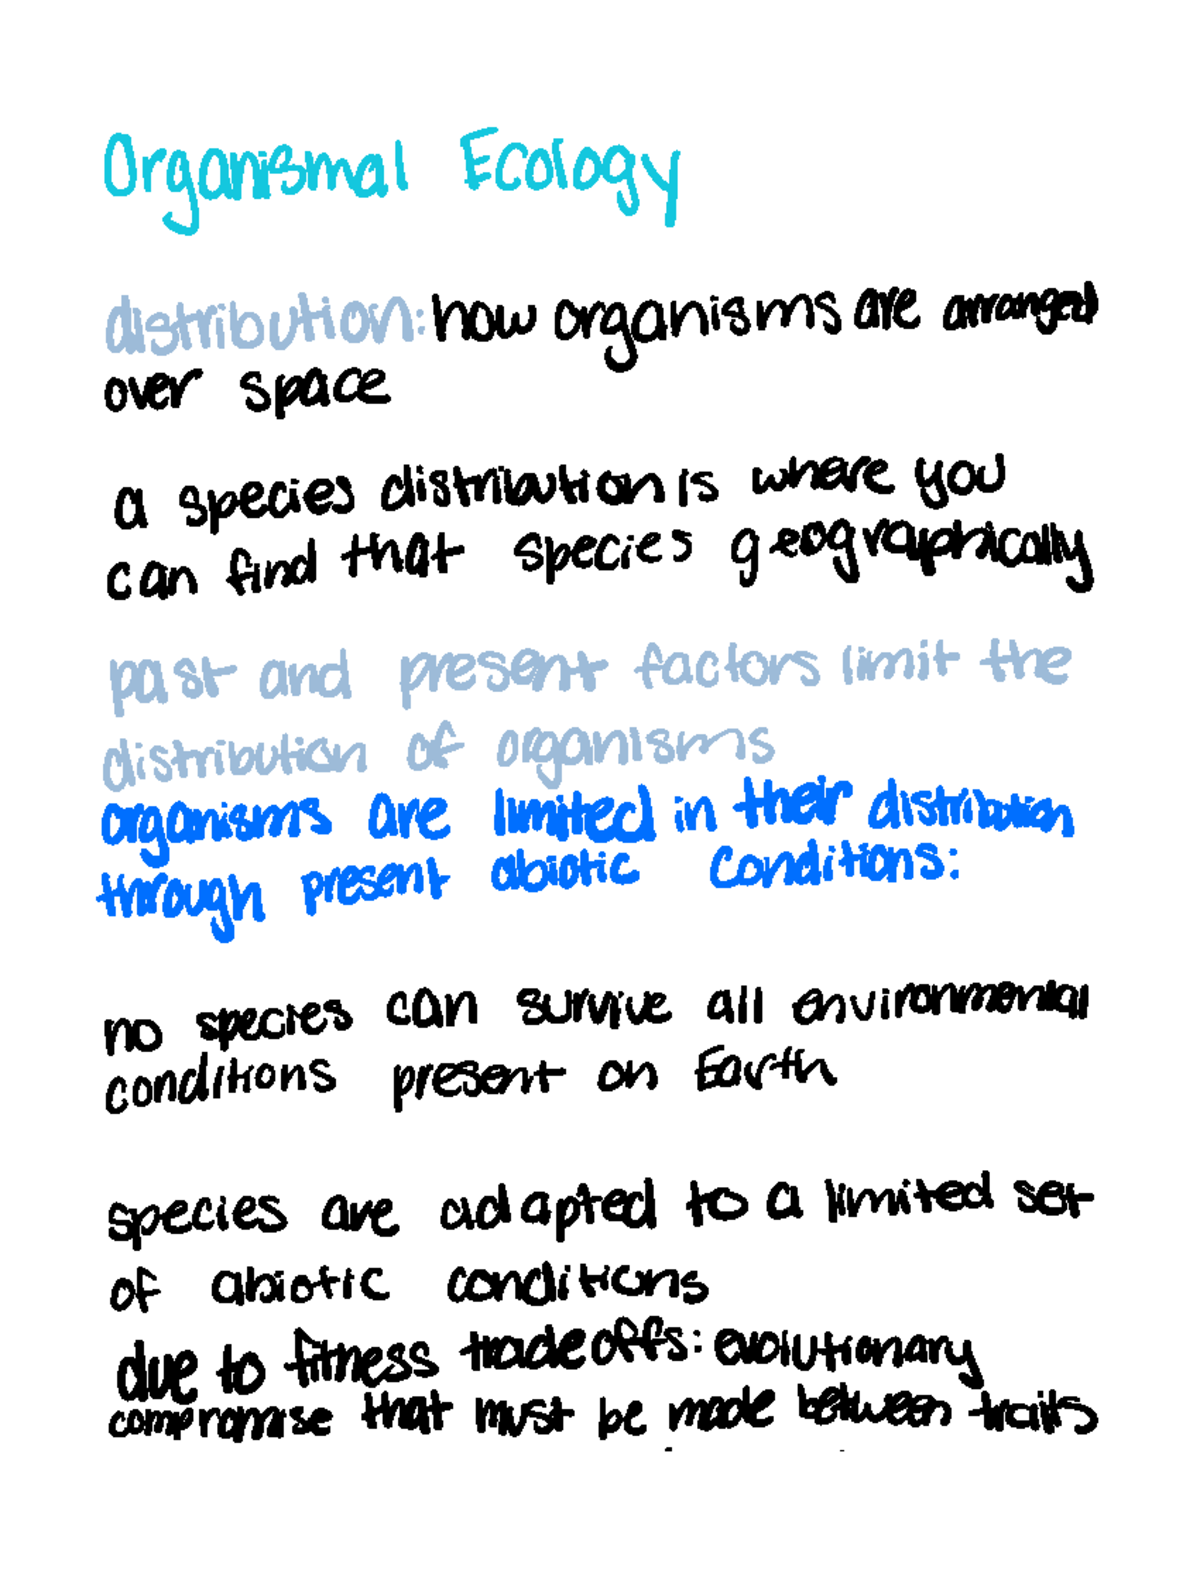 Organismal Ecology
distribution: how organisms are arranged
over space
a species distribution is where you
can find that species geographically
past and present factors limit the
distribution of organisms
organisms are limited in their distribution
through present abiotic conditions:
no species can survive all environmental
conditions present on Earth
species are adapted to a limited set
of abiotic conditions
due to fitness tradeoffs: evolutionary
compromise that must be made between traits